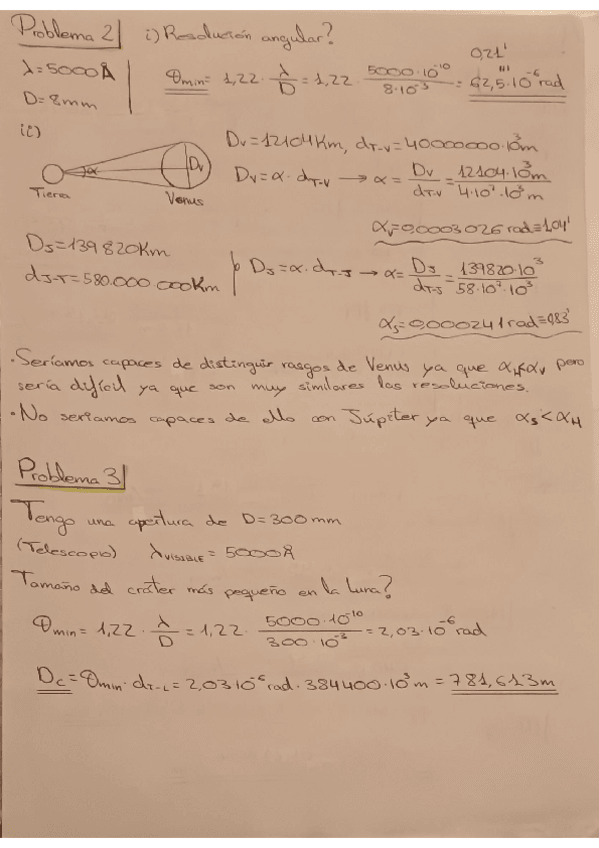 Problema 2 i) Resolución angular?
λ=5000Å
D=8mm
θmin = 1,22 · λ/D = 1,22 · 5000·10^-10 / 8·10^-3 = 62,5·10^-6 rad
0,21'
ii)
Tierra α Venus Dv
Dv=12104Km, dT-V=40000000·10^3m
Dv=α·dT-V → α= Dv/dT-V = 12104·10^3m / 4·10^7·10^3m
αv=0,0003026 rad≡1,04'
DJ=139820Km
dJ-T=580.000.000Km
DJ=α·dT-J → α= DJ/dT-J = 139820·10^3 / 58·10^7·10^3
αJ=0,000241 rad≡0,83'
·Seríamos capaces de distinguir rasgos de Venus ya que αH≠αV pero
sería difícil ya que son muy similares las resoluciones.
·No seríamos capaces de ello con Júpiter ya que αJ<αH
Problema 3
Tengo una apertura de D=300mm
(Telescopio) λVISIBLE = 5000Å
Tamaño del cráter más pequeño en la Luna?
θmin = 1,22 · λ/D = 1,22 · 5000·10^-10 / 300·10^-3 = 2,03·10^-6 rad
Dc=θmin·dT-L=2,03·10^-6 rad·384400·10^3 m = 781,613m